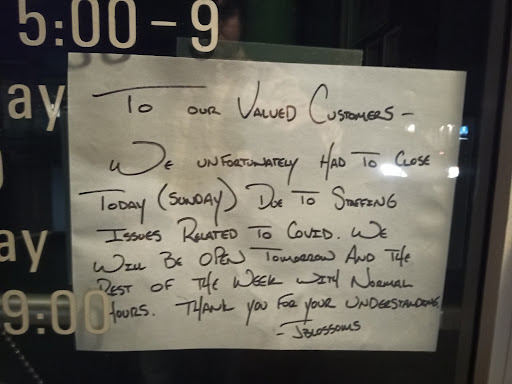 5:00-9
ay
ay
9:00
To our Valued Customers-
We unfortunately Had To Close
Today (Sunday) Due To Staffing
Issues Related To Covid. We
Will Be Open Tomorrow And The
Rest of the Week with Normal
Hours. Thank you for your understanding
-JBlossoms